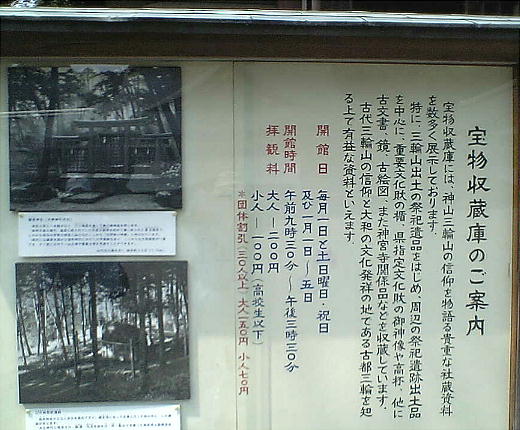 宝物収蔵庫のご案内
宝物収蔵庫には、神山三輪山の信仰を物語る貴重な社蔵資料
を数多く展示しております。
特に、三輪山出土の祭祀遺品をはじめ、周辺の祭祀遺跡出土品
を中心に、重要文化財の楯、県指定文化財の御神像や高杯、他に
古文書、鏡、古絵図、また神宮寺関係品などを収蔵しています。
古代三輪山の信仰と大和の文化発祥の地である古都三輪を知
る上で有益な資料といえます。
開館日 毎月一日と土日曜日・祝日
及び一月一日〜五日
開館時間 午前九時三〇分〜午後三時三〇分
拝観料 大人―二〇〇円
小人―一〇〇円(高校生以下)
*団体割引(三〇人以上 大人一五〇円 小人七〇円